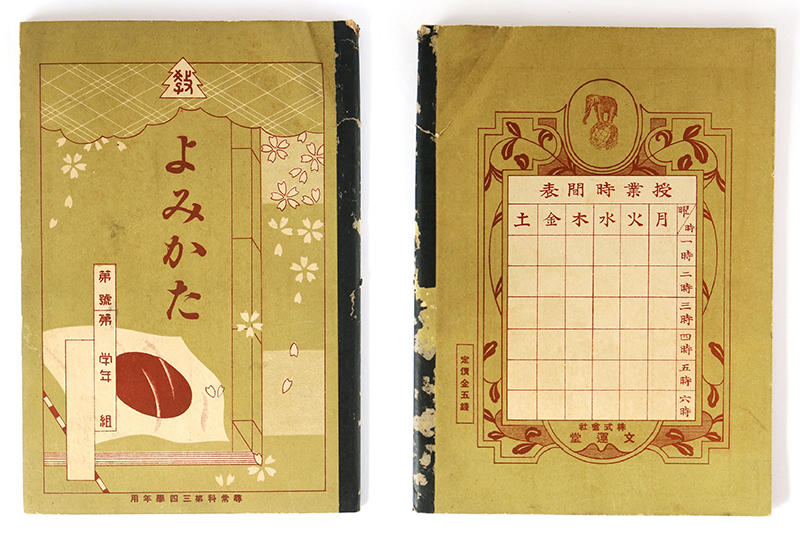 教
よみかた
第 號
第 学年 組
尋常科第三四學年用
授業時間表
曜 時
月 火 水 木 金 土
一時
二時
三時
四時
五時
六時
株式會社
文運堂
定價金五錢